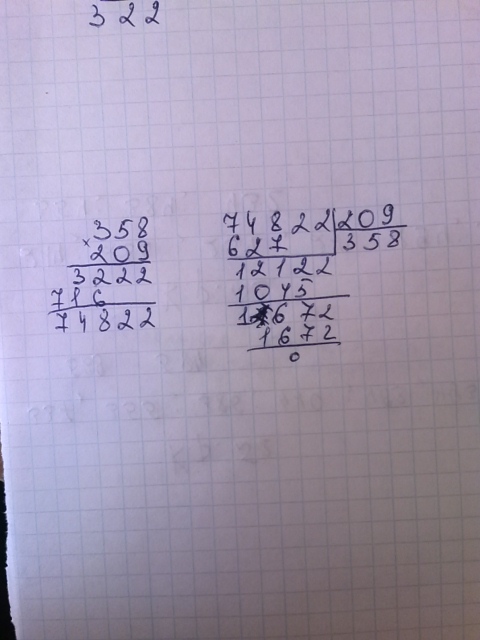 322
358
× 209
3222
716
74822
74822 209
627 358
12122
1045
1672
1672
0